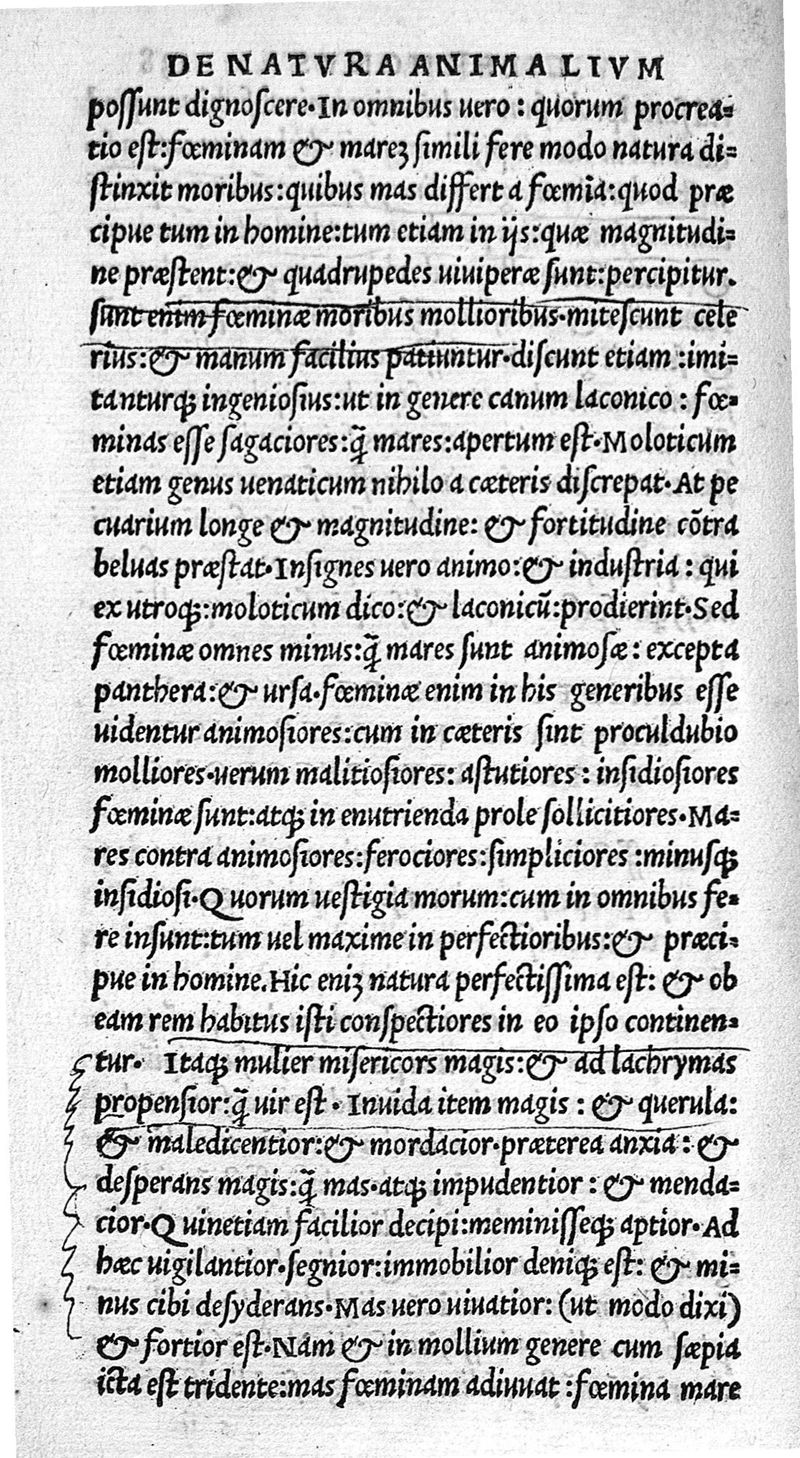 DE NATVRA ANIMALIVM
possunt dignoscere·In omnibus uero : quorum procrea=
tio est:fœminam & mareȝ simili fere modo natura di=
stinxit moribus:quibus mas differt a fœmīa:quod præ
cipue tum in homine:tum etiam in ijs:quæ magnitudi=
ne præstent:& quadrupedes uiuiperæ sunt:percipitur.
sunt enim fœminæ moribus mollioribus·mitescunt cele
rius:& manum facilius patiuntur·discunt etiam :imi=
tanturqꝫ ingeniosius:ut in genere canum laconico : fœ=
minas esse sagaciores:q̃ mares:apertum est·Moloticum
etiam genus uenaticum nihilo a cæteris discrepat·At pe
cuarium longe & magnitudine: & fortitudine cõtra
beluas præstat·Insignes uero animo:& industria : qui
ex utroqꝫ:moloticum dico:& laconicũ:prodierint·Sed
fœminæ omnes minus:q̃ mares sunt animosæ : excepta
panthera:& ursa·fœminæ enim in his generibus esse
uidentur animosiores:cum in cæteris sint proculdubio
molliores·uerum malitiosiores: astutiores : insidiosiores
fœminæ sunt:atqꝫ in enutrienda prole sollicitiores·Ma=
res contra animosiores:ferociores:simpliciores :minusqꝫ
insidiosi·Quorum uestigia morum:cum in omnibus fe=
re insunt:tum uel maxime in perfectioribus:& præci=
pue in homine.Hic eniȝ natura perfectissima est: & ob
eam rem habitus isti conspectiores in eo ipso continen=
tur· Itaqꝫ mulier misericors magis:& ad lachrymas
propensior:q̃ uir est · Inuida item magis : & querula:
& maledicentior:& mordacior·præterea anxia : &
desperans magis:q̃ mas·atqꝫ impudentior : & menda=
cior·Quinetiam facilior decipi:meminisseqꝫ aptior·Ad
hæc uigilantior·segnior:immobilior deniqꝫ est: & mi=
nus cibi desyderans·Mas uero uiuatior: (ut modo dixi)
& fortior est·Nam & in mollium genere cum sæpia
icta est tridente:mas fœminam adiuuat :fœmina mare